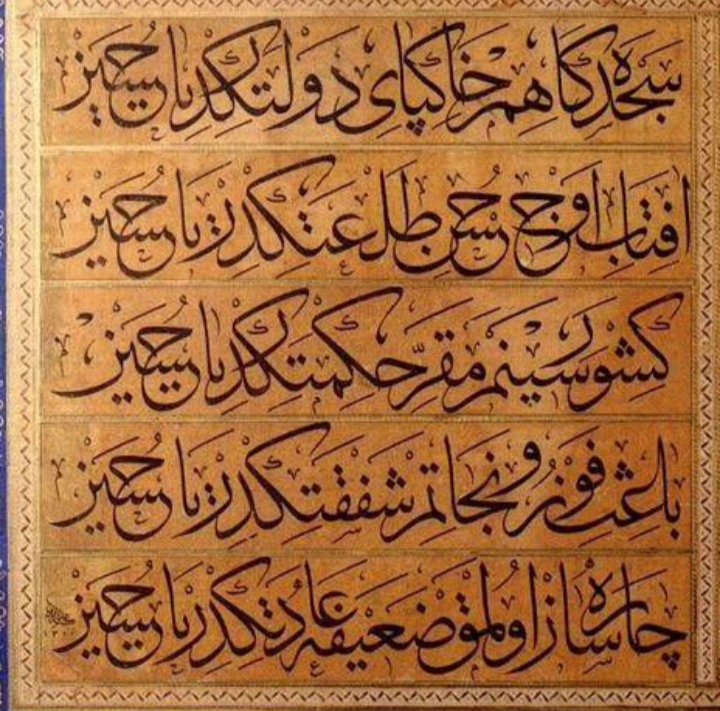 سجده‌گاهم خاکپای دولتکدر یا حسین
افتاب اوج حسن طلعتکدر یا حسین
کشور سینه‌م مقر حکمتکدر یا حسین
باعث فوز و نجاتم شفقتکدر یا حسین
چاره‌ساز اولمق ضعیفه عادتکدر یا حسین